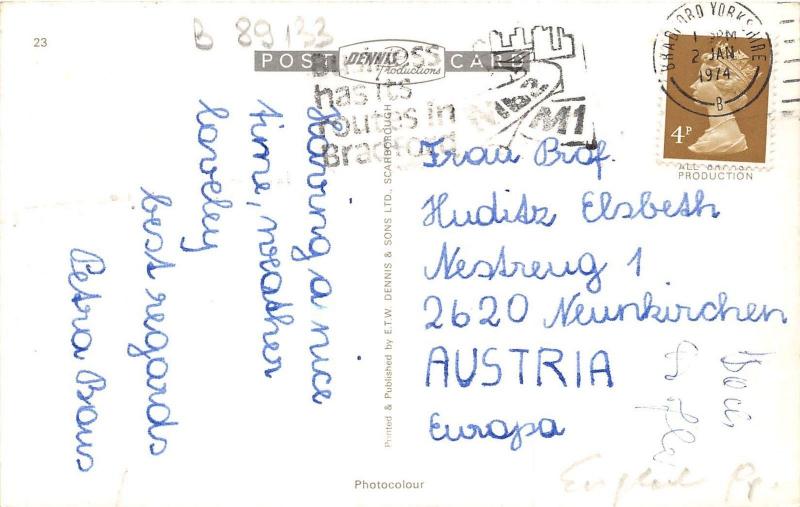 23
B 89133
POST CARD
DENNIS
Productions
Business
has its
routes in
Bradford
M62
M1
BRADFORD YORKSHIRE
1 PM
2 JAN
1974
B
4P
PRODUCTION
Having a nice
time, weather
loveley
best regards
Petra Baus
Printed & Published by E.T.W. DENNIS & SONS LTD., SCARBOROUGH
Frau Prof.
Huditz Elsbeth
Nestreug 1
2620 Neunkirchen
AUSTRIA
Europa
Photocolour